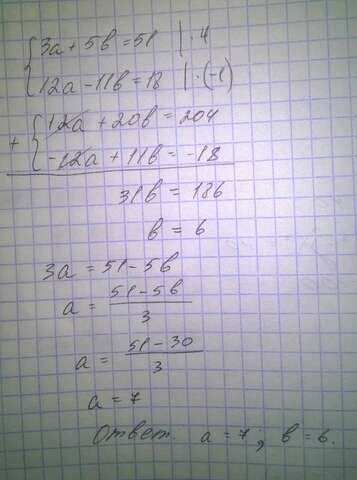 {3a + 5b = 51 | · 4
{12a - 11b = 18 | · (-1)
+ {12a + 20b = 204
{-12a + 11b = -18
31b = 186
b = 6
3a = 51 - 5b
a = (51 - 5b)/3
a = (51 - 30)/3
a = 7
Ответ. a = 7; b = 6.